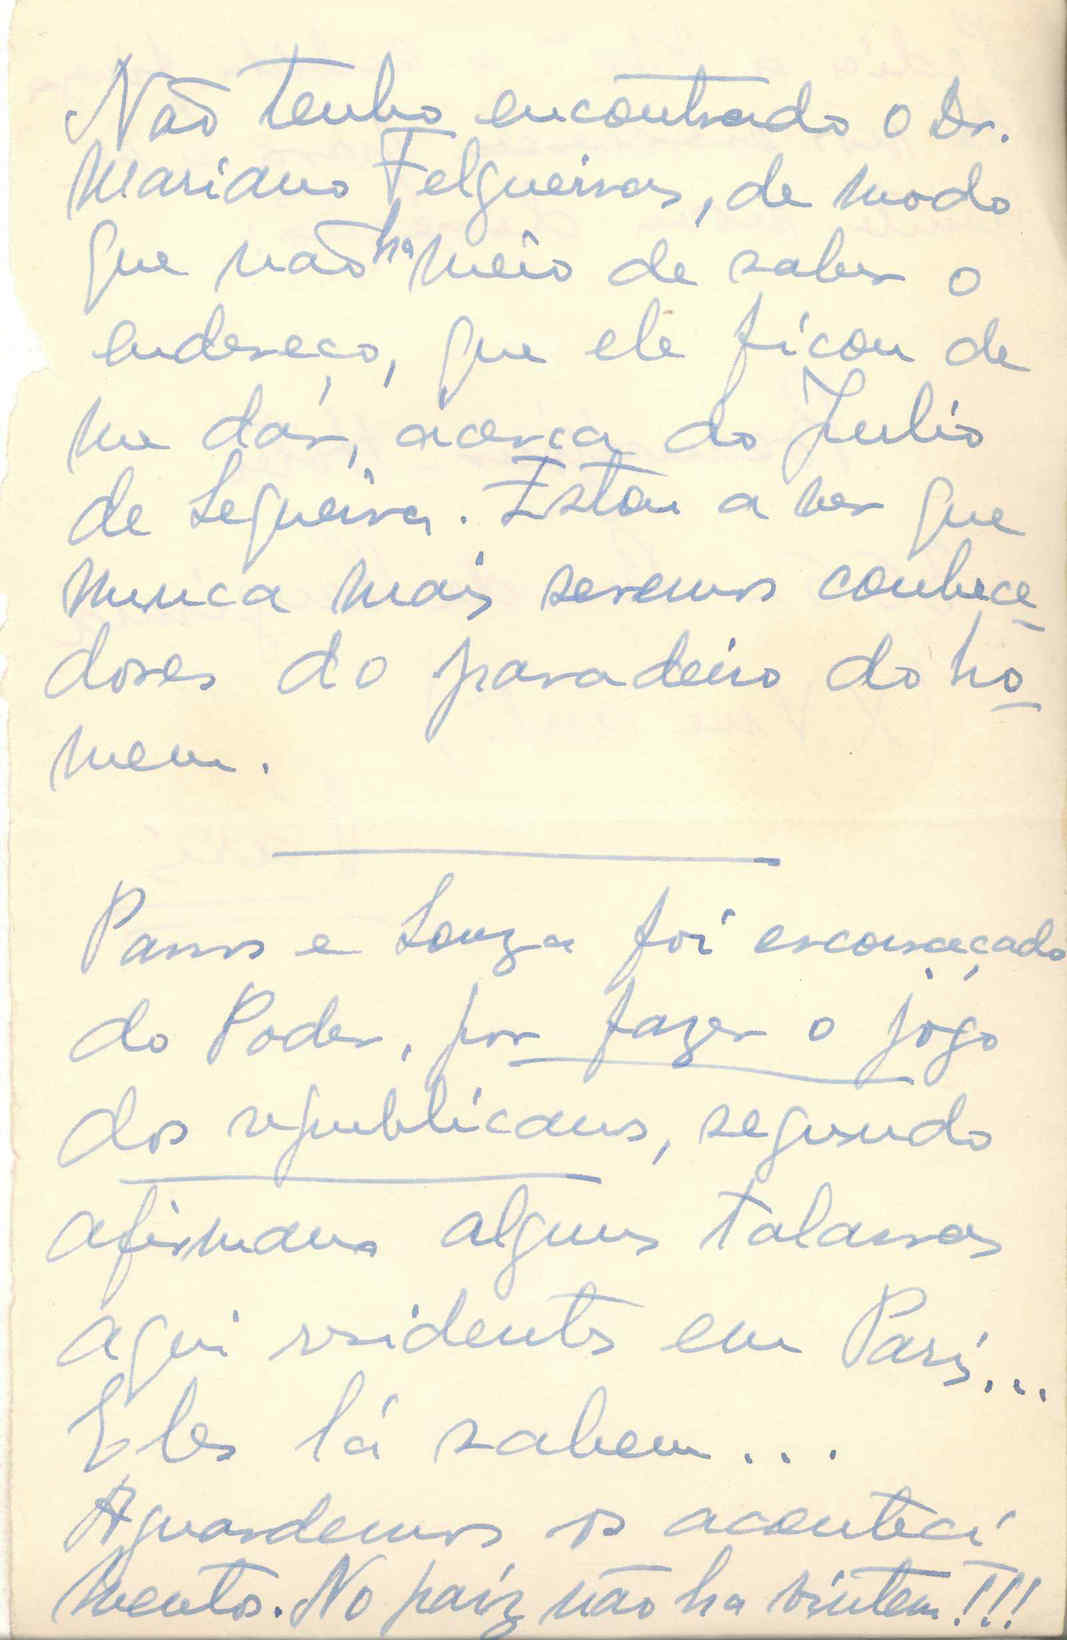 Não tenho encontrado o Dr.
Mariano Felgueiras, de modo
que não ha meio de saber o
endereço, que ele ficou de
me dár, acerca do Julio
de Segueira. Estou a ver que
nunca mais seremos conhece
dores do paradeiro do ho
mem.
Passos e Souza foi escorraçado
do Poder, por fazer o jôgo
dos republicanos, segundo
afirmam alguns talassas
aqui residentes em Paris...
Eles lá sabem...
Aguardemos os aconteci
mentos. No paiz não ha vintem!!!